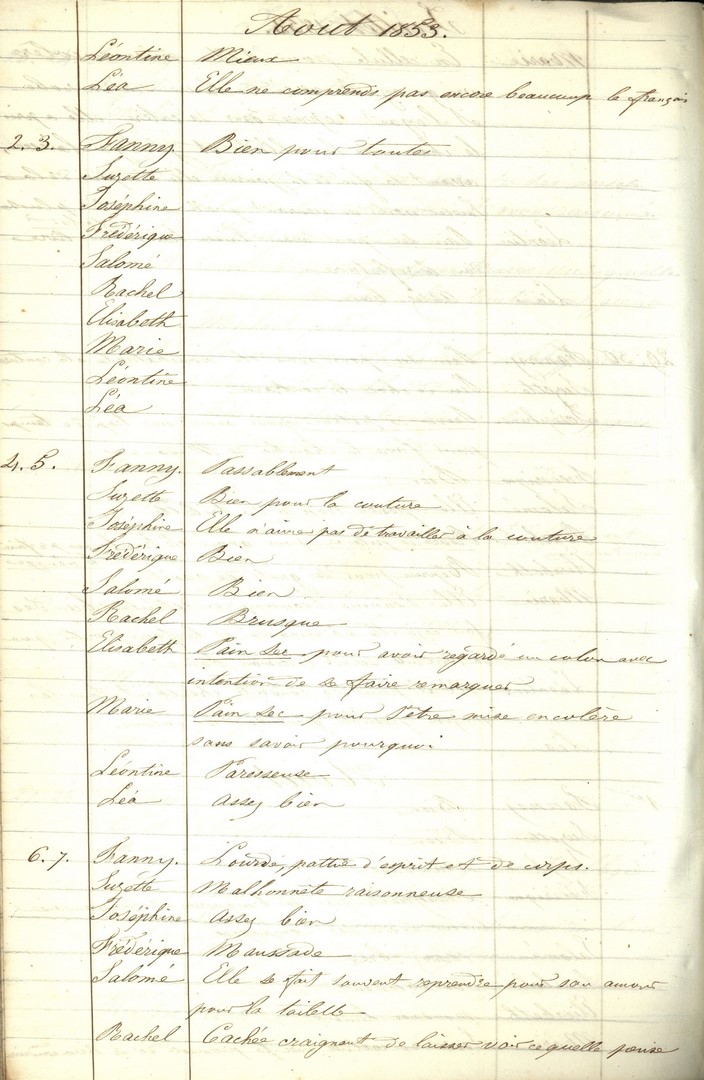 Aout 1853.
Léontine Mieux
Léa Elle ne comprends pas encore beaucoup le français
2. 3. Fanny Bien pour toutes
Suzette
Joséphine
Frédérique
Salomé
Rachel
Elisabeth
Marie
Léontine
Léa
4. 5. Fanny. Passablement
Suzette Bien pour la couture
Joséphine Elle n'aime pas de travailler à la couture
Frédérique Bien
Salomé Bien
Rachel Brusque
Elisabeth Pain sec pour avoir regardé un colon avec
intention de se faire remarquer
Marie Pain sec pour s'être mise en colère
sans savoir pourquoi
Léontine Paresseuse
Léa assez bien
6. 7. Fanny. Lourde, d'esprit et de corps.
Suzette Malhonnête raisonneuse
Joséphine assez bien
Frédérique Maussade
Salomé Elle se fait souvent reprendre pour son amour
pour la toilette
Rachel Cachée craignant de laisser voir ce quelle pense